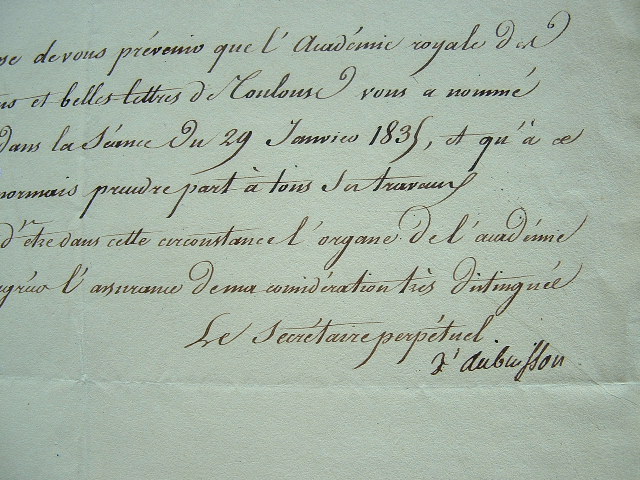 se de vous prévenir que l'Académie royale des
ns et belles lettres de Toulouse vous a nommé
dans la Séance du 29 Janvier 1835, et qu'à ce
normais prendre part à tous Ses travaux
d'être dans cette circonstance l'organe de l'académie
agréer l'assurance de ma considération très distinguée
Le Secrétaire perpétuel
d'aubuisson